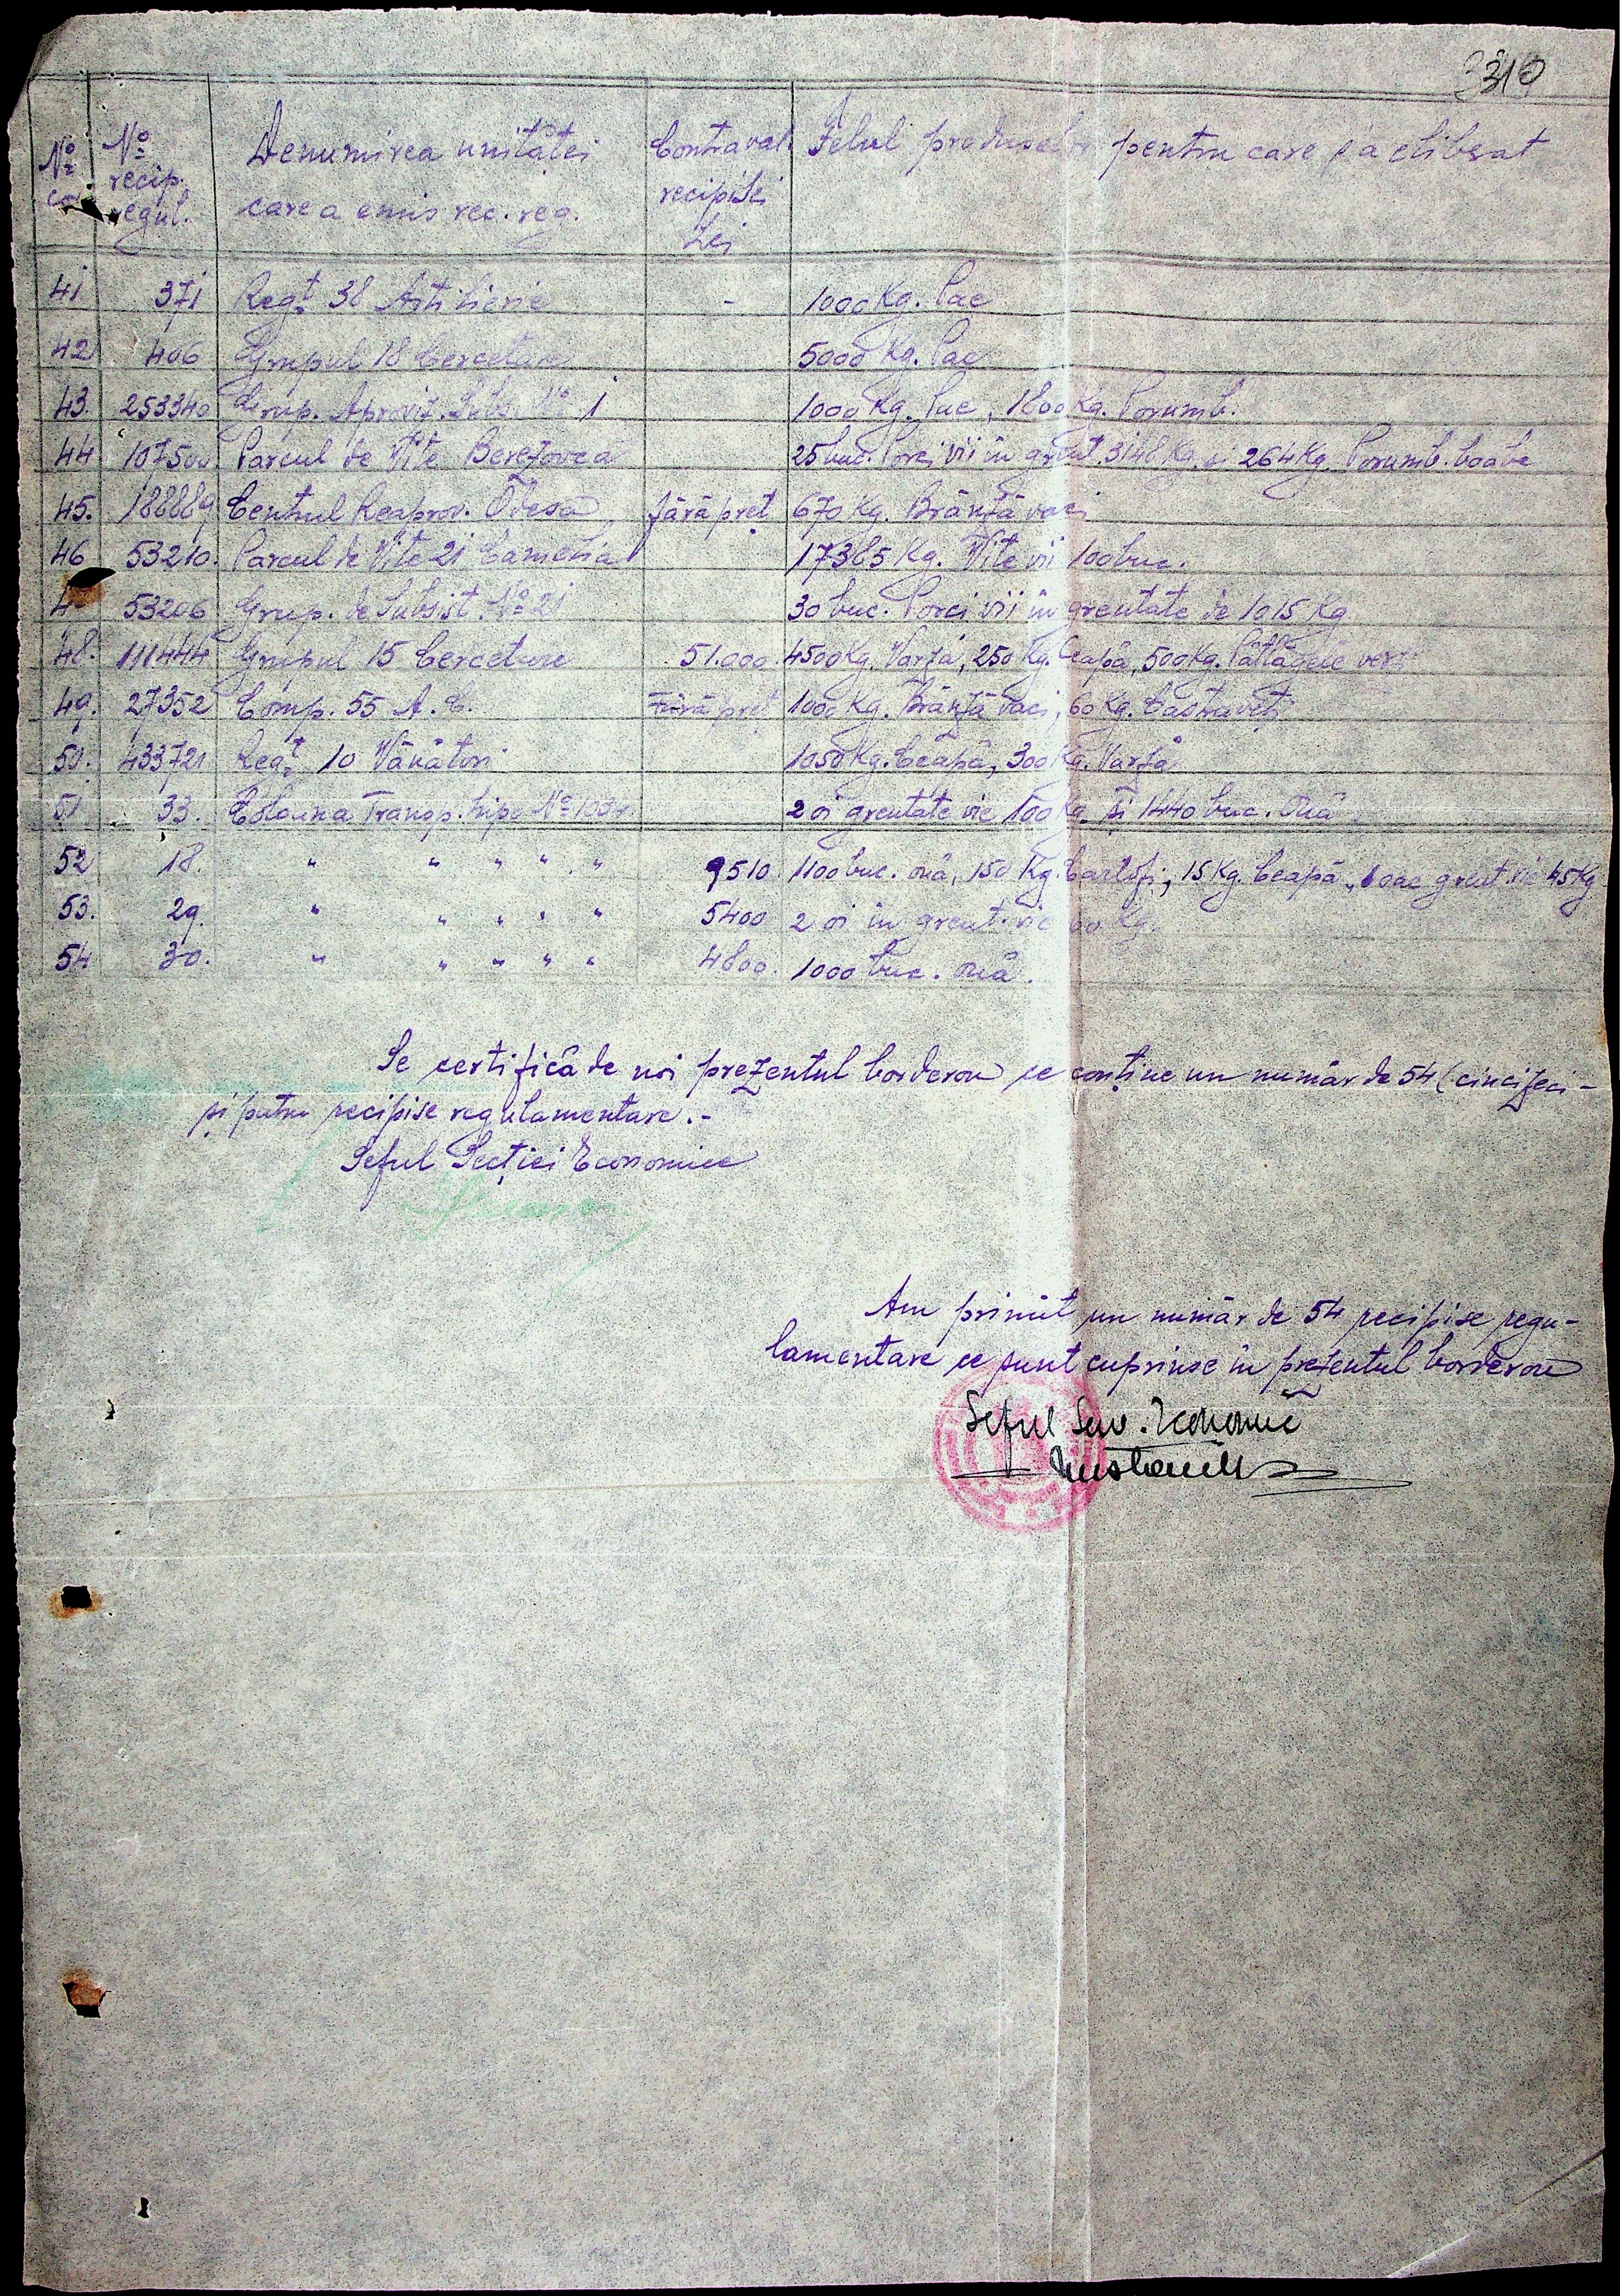 310
No co. No recip. regul. Denumirea unităței care a emis rec. reg. Contraval. recipisei Lei Felul produselor pentru care s'a eliberat
41 371 Regt. 38 Artilerie - 1000 Kg. Pae
42 406 Grupul 18 Cercetare 5000 Kg. Pae
43. 253340 Grup. Aproviz. Subs. No 1 1000 Kg. Pae, 1800 Kg. Porumb.
44 107500 Parcul de Vite Berezovca 25 buc. Porci vii în greut. 3148 Kg. și 264 Kg. Porumb. boabe
45. 188889 Centrul Reaprov. Odesa fără preț 670 Kg. Brânză vaci
46 53210. Parcul de Vite 21 17385 Kg. Vite vii 100 buc.
53206 Grup. de Subsist. No 21 30 buc. Porci vii în greutate de 1015 Kg.
48. 111444 Grupul 15 Cercetare 51.000 4500 Kg. Varză, 250 Kg. Ceapă, 500 Kg. Pătlăgele verzi
49. 27352 Comp. 55 A. C. Fără preț 1000 Kg. Brânză vaci, 60 Kg. Castraveți
50. 433721 Regt. 10 Vânători 1050 Kg. Ceapă, 300 Kg. Varză
51 33. Coloana Transp. hipo No 2 oi greutate vie 100 Kg. și 1440 buc. Ouă
52 18. " " " " " 9510 1100 buc. ouă, 150 Kg. Cartofi, 15 Kg. Ceapă, greut. vie 45 Kg
53. 29. " " " " " 5400 2 oi în greut. vie 60 Kg.
54 30. " " " " " 4800. 1000 buc. ouă.
Se certifică de noi prezentul borderou ce conține un număr de 54 (cincizeci-
și patru recipise regulamentare.-
Șeful Secției Economice
Am primit un număr de 54 recipise regu-
lamentare ce sunt cuprinse în prezentul borderou
Șeful Serv. Economic